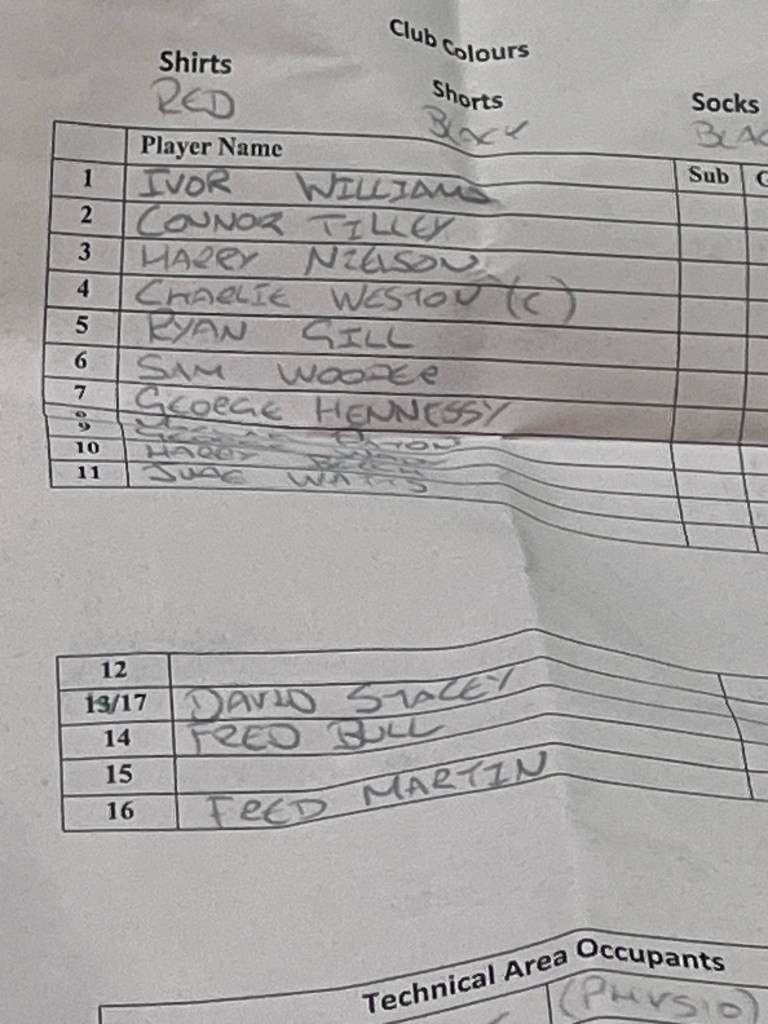 Club Colours
Shirts Shorts Socks
RED BLACK
Player Name Sub
1 IVOR WILLIAMS
2 CONNOR TILLEY
3 HARRY NIELSON
4 CHARLIE WESTON (C)
5 RYAN GILL
6 SAM WOOZER
7 GEORGE HENNESSY
8
9
10 HARRY
11 JUDE WATTS
12
13/17 DAVID STACEY
14 FRED BULL
15
16 FRED MARTIN
Technical Area Occupants
(PHYSIO)